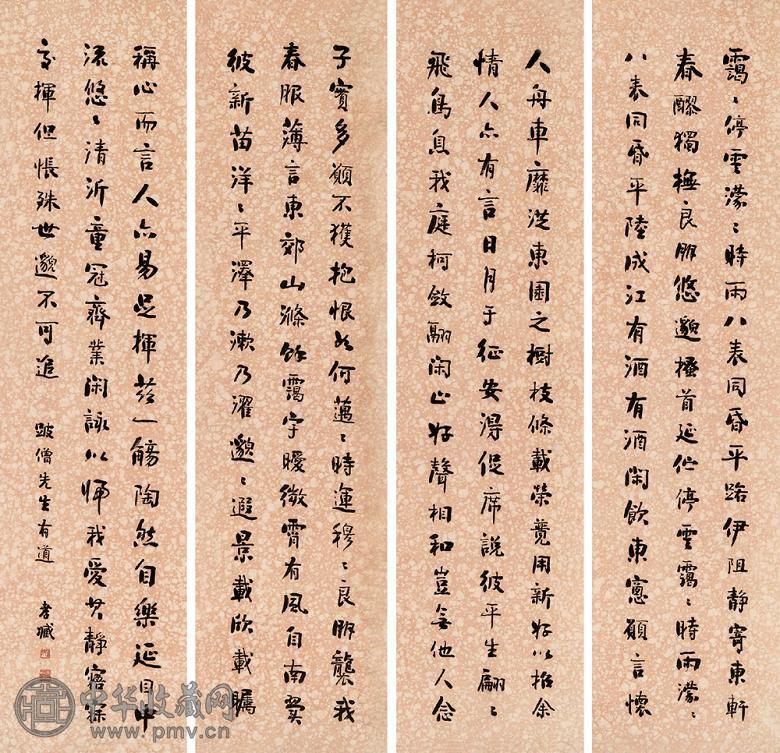 靄〻停雲濛〻時雨八表同昏平路伊阻靜寄東軒
春醪獨撫良朋悠邈搔首延佇停雲靄〻時雨濛〻
八表同昏平陸成江有酒有酒閑飲東窗願言懷
人舟車靡從東園之樹枝條載榮競用新好以招余
情人亦有言日月于征安得促席說彼平生翩〻
飛鳥息我庭柯斂翮閑止好聲相和豈無他人念
子實多願不獲抱恨如何邁〻時運穆〻良朋襲我
春服薄言東郊山滌餘靄宇曖微霄有風自南翼
彼新苗洋〻平澤乃漱乃濯邈〻遐景載欣載矚
稱心而言人亦易足揮茲一觴陶然自樂延目中
流悠〻清沂童冠齊業閑詠以歸我愛其靜寤寐
交揮但悵殊世邈不可追
皷僧先生有道 孝臧
中华收藏网
www.pmv.cn